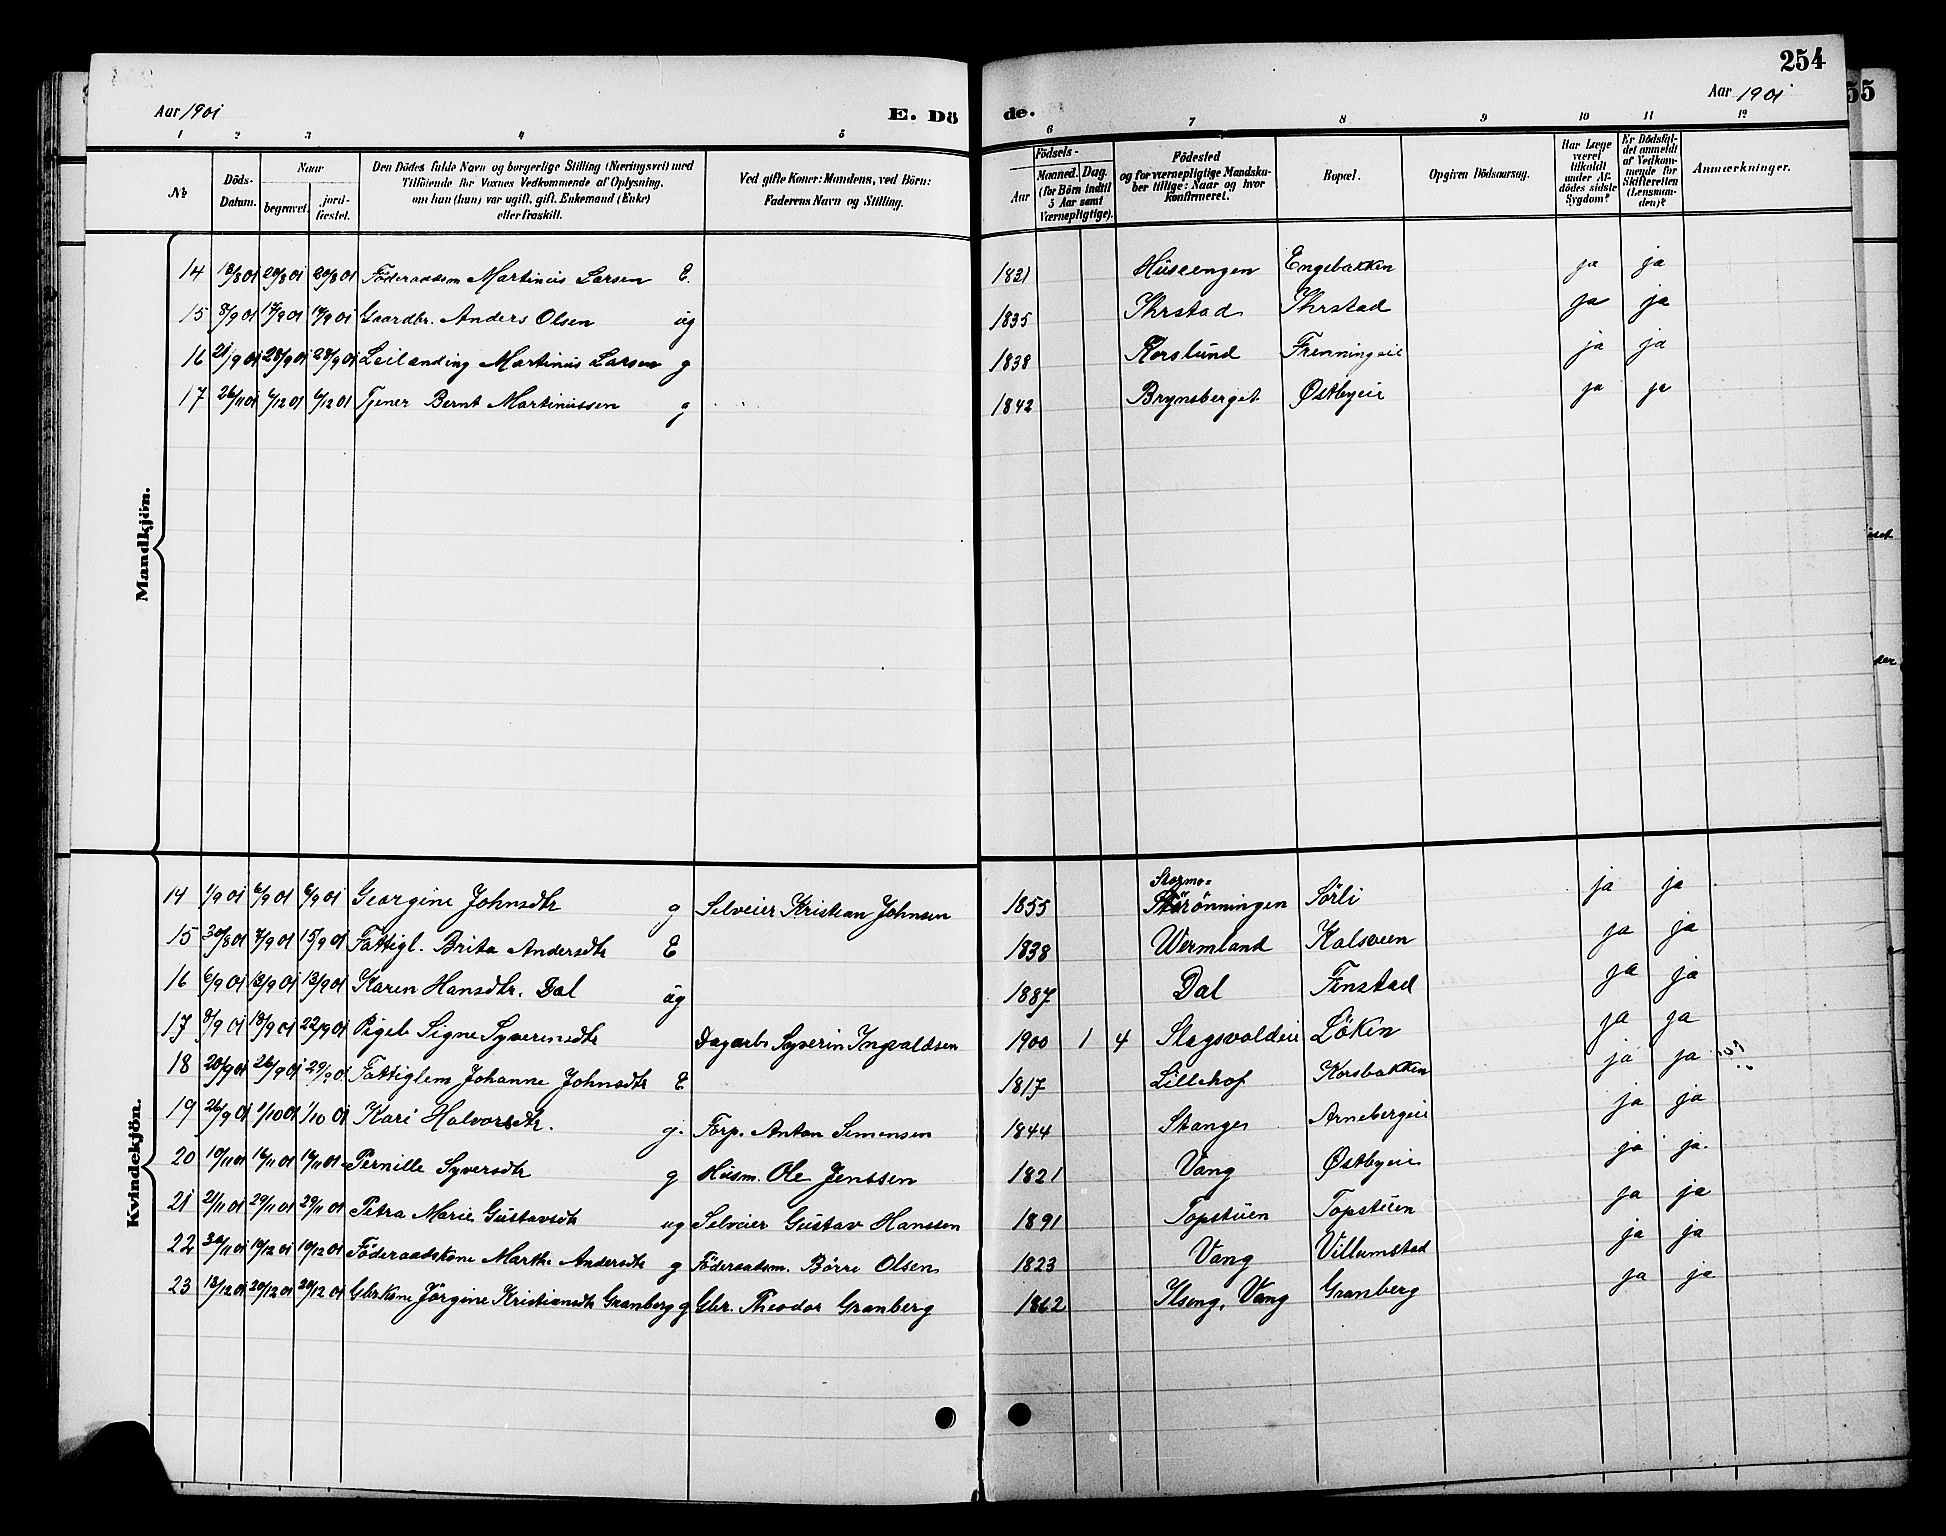 254
55
Aar 1901 E. Dö de. Aar 1901
1 2 3 4 5 6 7 8 9 10 11 12
No
Döds-Datum.
Naar
begravet.
jord-fæstet.
Den Dödes fulde Navn og borgerlige Stilling (Næringsvei) med
Tilföiende for Voxnes Vedkommende af Oplysning,
om han (hun) var ugift, gift, Enkemand (Enke)
eller fraskilt.
Ved gifte Koner: Mandens, ved Börn:
Faderens Navn og Stilling.
Födsels-
Aar
Maaned. Dag.
(for Börn indtil
5 Aar samt
Værnepligtige).
Födested
og for værnepligtige Mandska-
ber tillige: Naar og hvor
konfirmeret.
Bopæl.
Opgiven Dödsaarsag.
Har Læge
været
tilkaldt
under Af-
dödes sidste
Sygdom?
Er Dödsfal-
det anmeldt
af Vedkom-
mende for
Skifteretten
(Lensman-
den)?
Anmærkninger.
Mandkjön.
14 18/8 01 20/8 01 20/8 01 Föderaadsm Martinus Larsen E. 1821 Huseengen Engebakken ja ja
15 8/9 01 17/9 01 17/9 01 Gaardbr. Anders Olsen ug 1835 Ihrstad Ihrstad ja ja
16 21/9 01 28/9 01 28/9 01 Leilending Martinus Larsen g 1838 Korslund Frenningeie ja ja
17 26/11 01 6/12 01 6/12 01 Tjener Bernt Martinussen g 1842 Brynsberget Østbyeie ja ja
Kvindekjön.
14 1/9 01 6/9 01 6/9 01 Georgine Johnsdtr g Selveier Kristian Johnsen 1855 Stormo= rönningen Sörli ja ja
15 30/8 01 7/9 01 15/9 01 Fattigl. Brita Andersdtr E 1838 Wermland Kalsveen ja ja
16 6/9 01 13/9 01 13/9 01 Karen Hansdtr. Dal ug 1887 Dal Finstad ja ja
17 8/9 01 13/9 01 22/9 01 Pigeb Signe Syverinsdtr Dagarb Syverin Ingvaldsen 1900 1 4 Slagsvoldeie Löken ja ja
18 20/9 01 26/9 01 29/9 01 Fattiglem Johanne Johnsdtr E 1817 Lillehof Korsbakken ja ja
19 26/9 01 1/10 01 1/10 01 Kari Halvorsdtr. g. Forp. Anton Simensen 1844 Stange Arnebergeie ja ja
20 10/11 01 16/11 01 16/11 01 Pernille Syversdtr g Husm. Ole Jenssen 1821 Vang Østbyeie ja ja.
21 21/11 01 29/11 01 29/11 01 Petra Marie Gustavsdtr ug Selveier Gustav Hanssen 1891 Topstuen Topstuen ja ja
22 30/11 01 10/12 01 10/12 01 Föderaadskone Marthe Andersdtr g Föderaadsm. Börre Olsen 1823 Vang Villumstad ja ja
23 13/12 01 20/12 01 20/12 01 Gbrkone Jörgine Kristiansdtr Granberg g Gbr. Theodor Granberg 1862 Ilseng, Vang Granberg ja ja